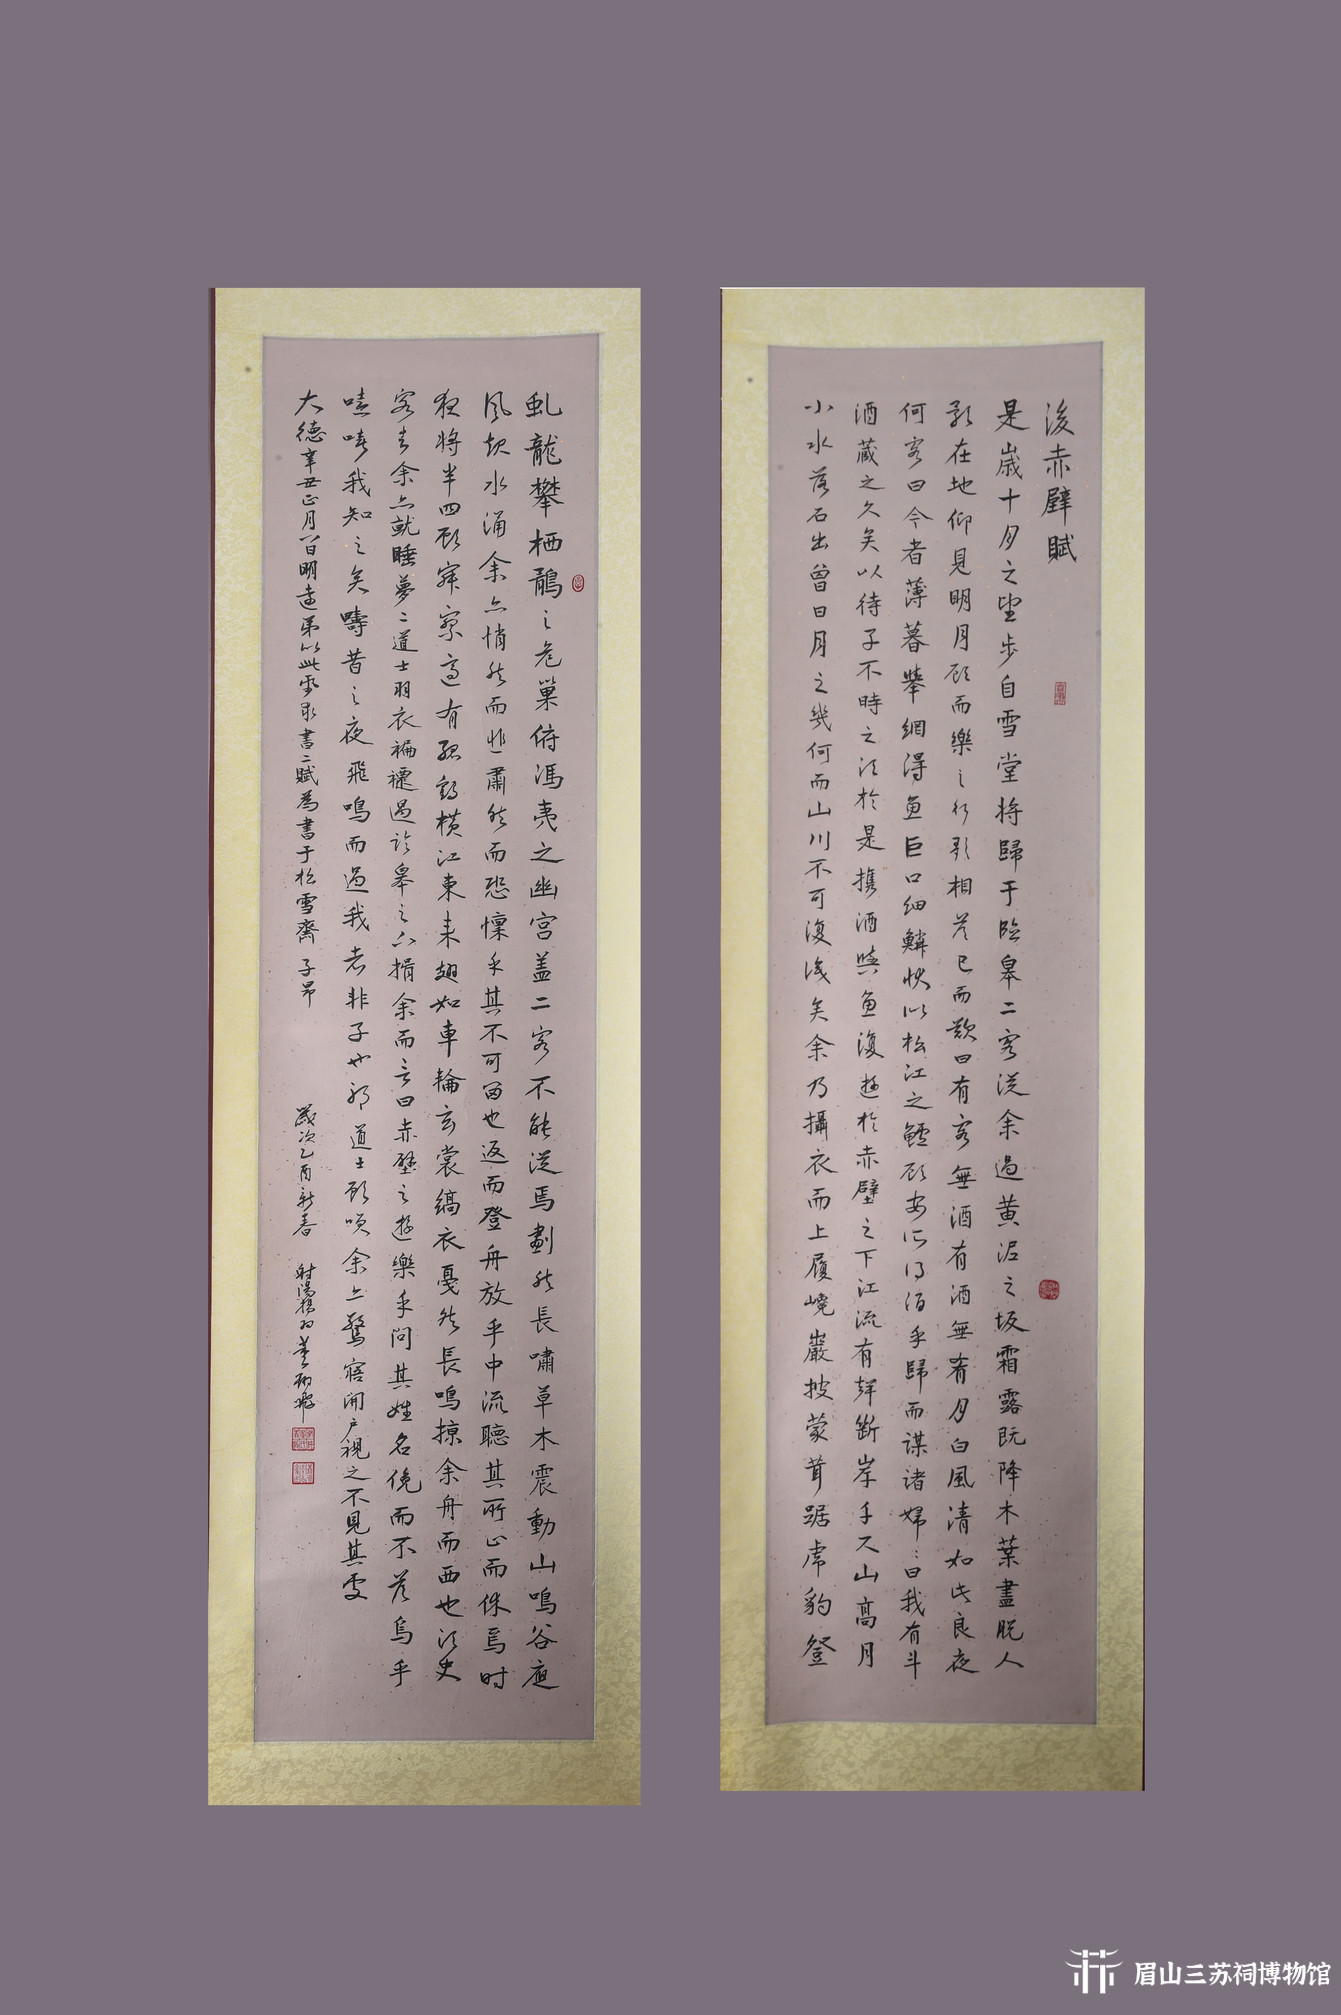 後赤壁賦
是歲十月之望步自雪堂將歸于臨皋二客從余過黃泥之坂霜露既降木葉盡脫人
影在地仰見明月顧而樂之行歌相答已而歎曰有客無酒有酒無肴月白風清如此良夜
何客曰今者薄暮舉網得魚巨口細鱗狀似松江之鱸顧安所得酒乎歸而謀諸婦〻曰我有斗
酒藏之久矣以待子不時之須於是攜酒與魚復遊於赤壁之下江流有聲斷岸千尺山高月
小水落石出曾日月之幾何而山川不可復識矣余乃攝衣而上履巉巖披蒙茸踞虎豹登
虯龍攀栖鶻之危巢俯馮夷之幽宮蓋二客不能從焉劃然長嘯草木震動山鳴谷應
風起水涌余亦悄然而悲肅然而恐懍乎其不可留也返而登舟放乎中流聽其所止而休焉時
夜將半四顧寂寥適有孤鶴橫江東來翅如車輪玄裳縞衣戛然長鳴掠余舟而西也須臾
客去余亦就睡夢二道士羽衣褊褼過臨皋之下揖余而言曰赤壁之遊樂乎問其姓名俛而不答烏乎
噫嘻我知之矣疇昔之夜飛鳴而過我者非子也邪道士顧笑余亦驚寤開戶視之不見其處
大德辛丑正月八日明遠弟以此紙求書二賦為書于松雪齋 子昂 歲次乙酉新春 射陽
眉山三苏祠博物馆